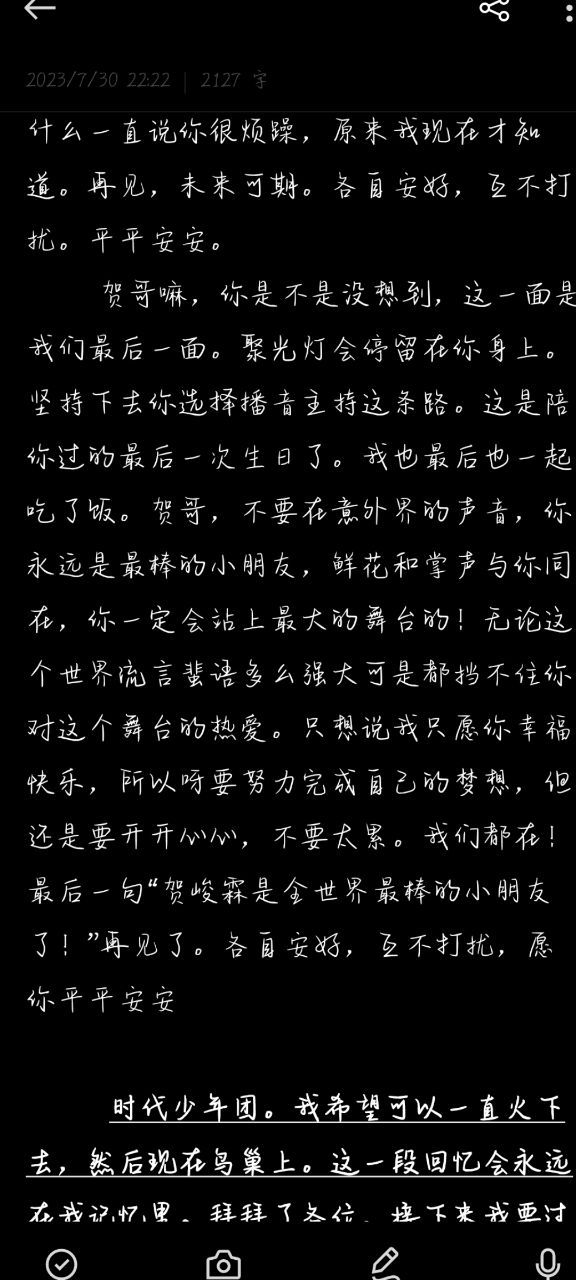 2023/7/30 22:22 | 2127 字
什么一直说你很烦躁，原来我现在才知
道。再见，未来可期。各自安好，互不打
扰。平平安安。
贺哥嘛，你是不是没想到，这一面是
我们最后一面。聚光灯会停留在你身上。
坚持下去你选择播音主持这条路。这是陪
你过的最后一次生日了。我也最后也一起
吃了饭。贺哥，不要在意外界的声音，你
永远是最棒的小朋友，鲜花和掌声与你同
在，你一定会站上最大的舞台的！无论这
个世界流言蜚语多么强大可是都挡不住你
对这个舞台的热爱。只想说我只愿你幸福
快乐，所以呀要努力完成自己的梦想，但
还是要开开心心，不要太累。我们都在！
最后一句“贺峻霖是全世界最棒的小朋友
了！”再见了。各自安好，互不打扰，愿
你平平安安
时代少年团。我希望可以一直火下
去，然后现在鸟巢上。这一段回忆会永远
在我记忆里。拜拜了各位，接下来我要过